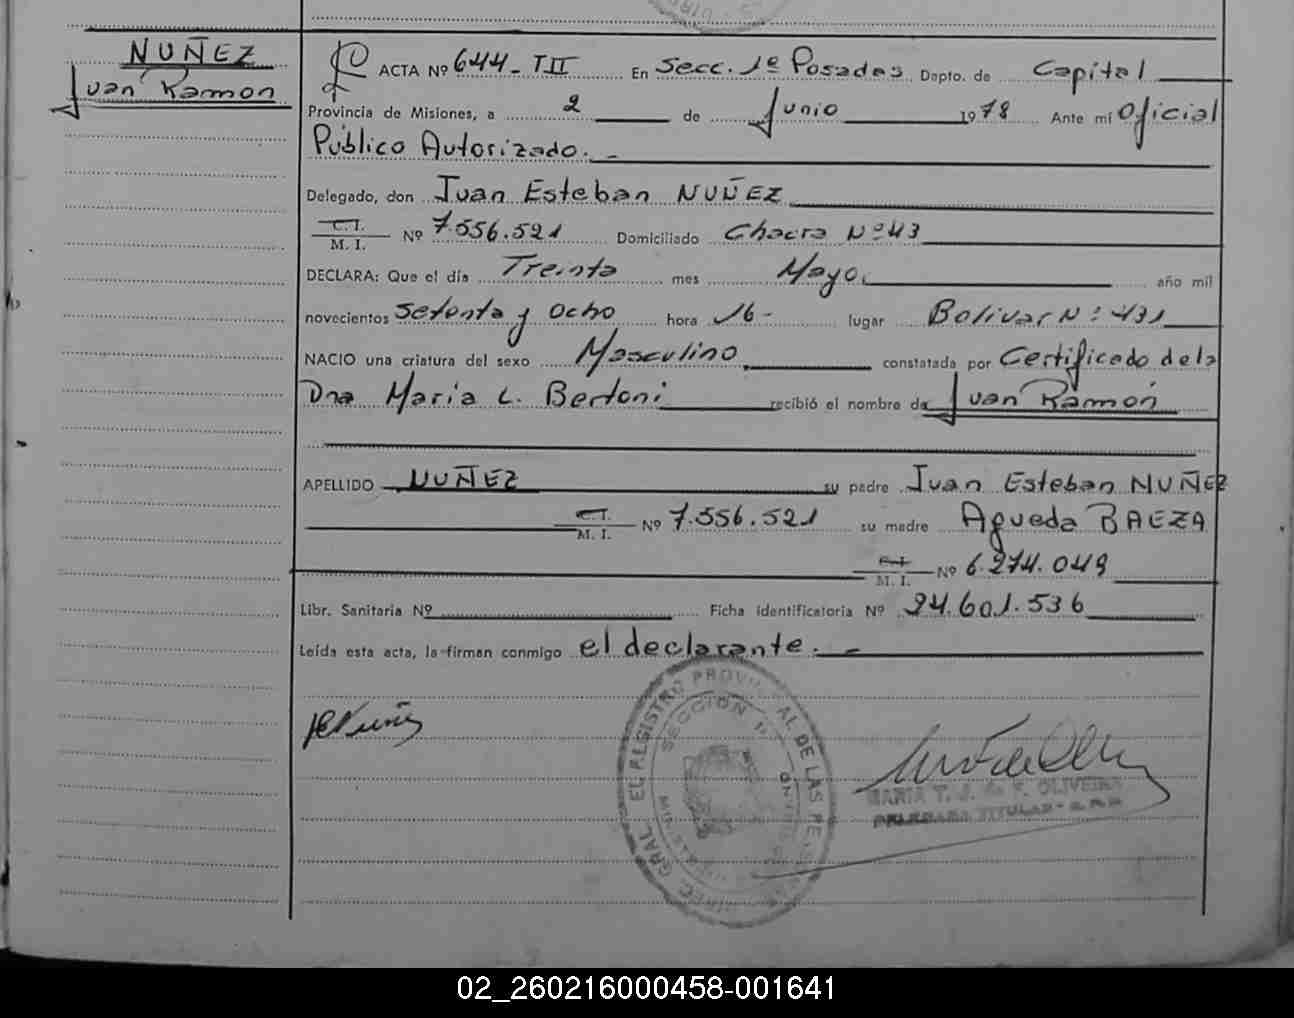 NUÑEZ
Juan Ramon
ACTA Nº 644-TII En Secc. 1º Posadas Depto. de Capital
Provincia de Misiones, a 2 de Junio 1978 Ante mí Oficial
Público Autorizado.-
Delegado, don Juan Esteban NUÑEZ
C. I.
M. I. Nº 7.556.521 Domiciliado Chacra Nº 43
DECLARA: Que el día Treinta mes Mayo. año mil
novecientos setenta y ocho hora 16- lugar Bolivar Nº 431
NACIO una criatura del sexo Masculino, constatada por Certificado de la
Dra Maria L. Bertoni recibió el nombre de Juan Ramón
APELLIDO NUÑEZ su padre Juan Esteban NUÑEZ
C. I.
M. I. Nº 7.556.521 su madre Agueda BAEZA
C. I.
M. I. Nº 6.274.049
Libr. Sanitaria Nº Ficha Identificatoria Nº 24.601.536
Leída esta acta, la firman conmigo el declarante.-
SECCION 1ª
MARIA T. J. de F. OLIVEIRA
DELEGADA TITULAR
02_260216000458-001641